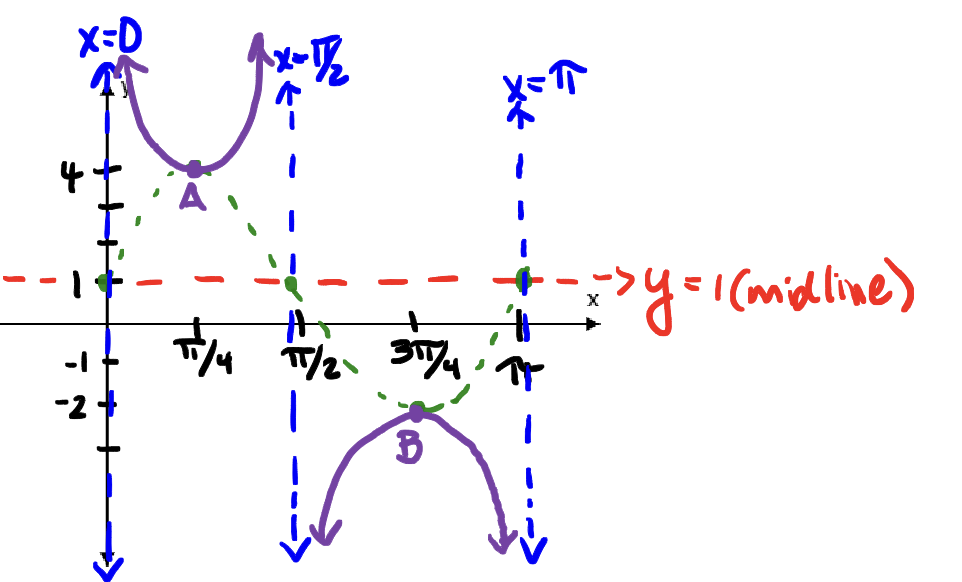 x=0
x=π/2
x=π
y
4
A
1
y=1(midline)
x
π/4
π/2
3π/4
π
-1
-2
B